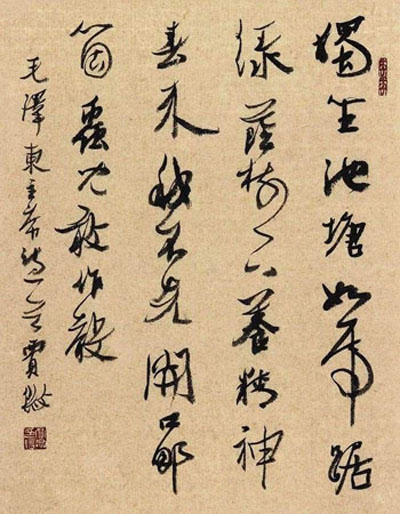 獨坐池塘如虎踞
綠蔭樹下養精神
春来我不先開口那
箇蟲兒敢作聲
毛澤東主席詩一首 賈